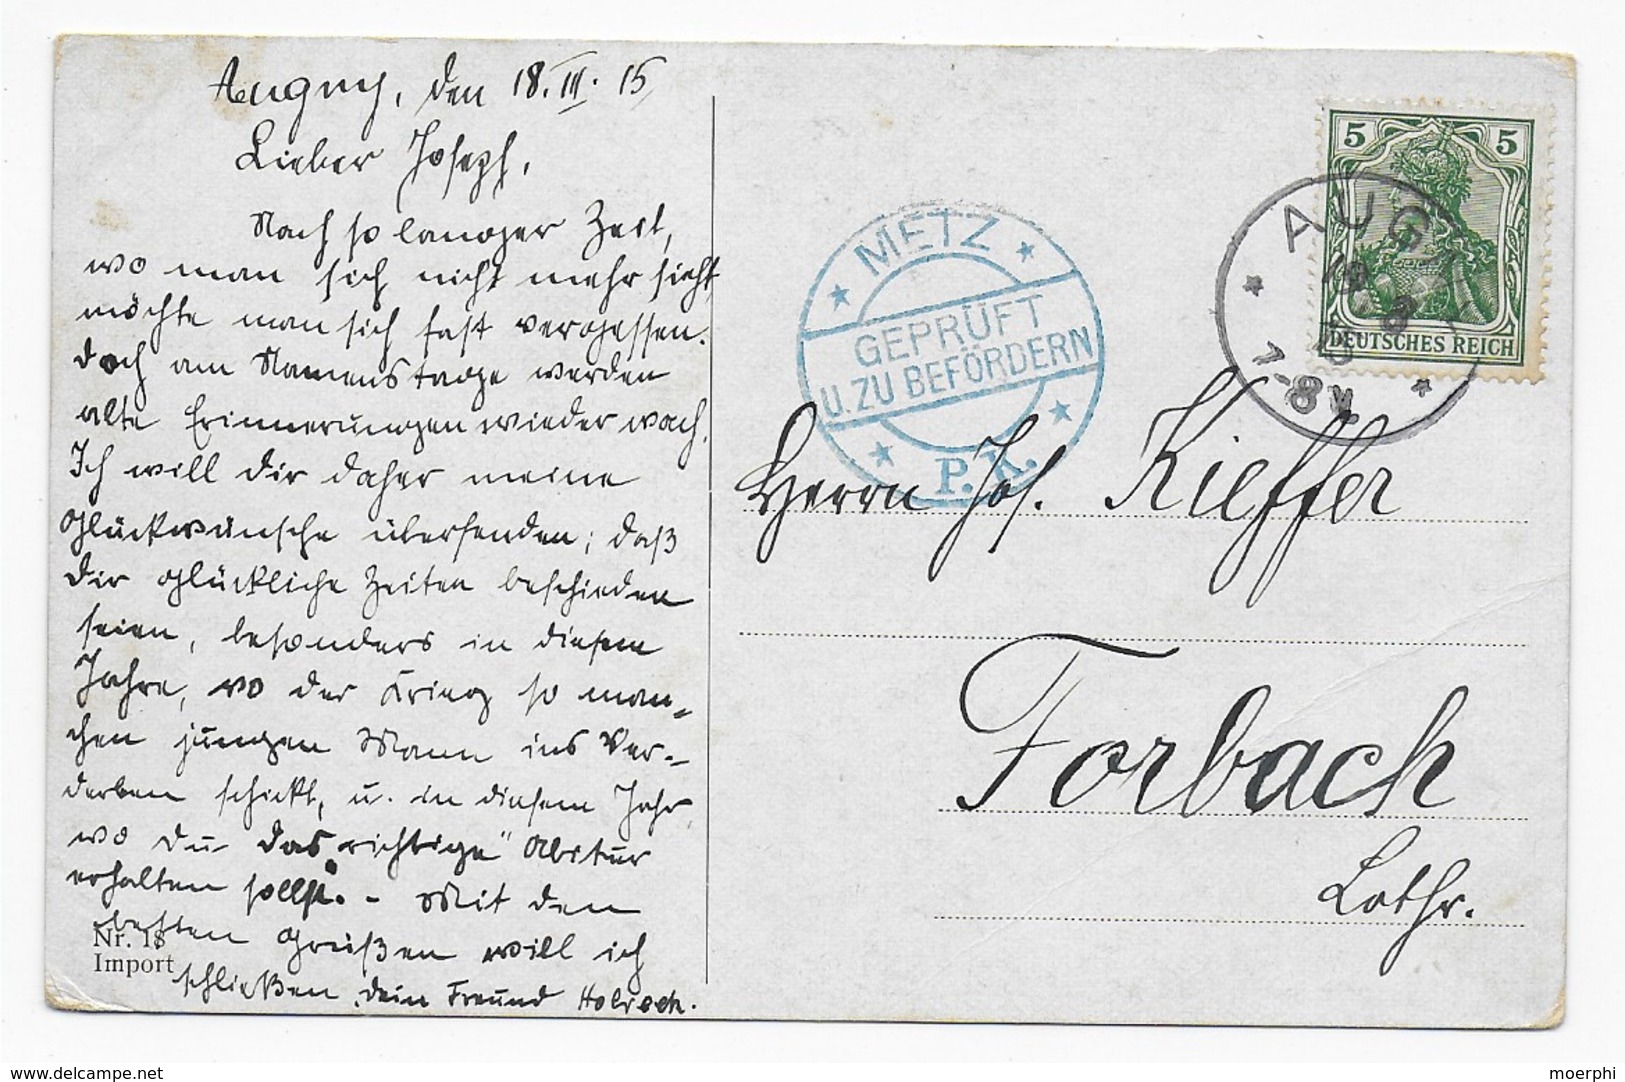 Augny, den 18. III. 15
Lieber Joseph,
Nach so langer Zeit,
wo man sich nicht mehr sieht,
möchte man sich fast vergessen.
Doch am Namenstage werden
alte Erinnerungen wieder wach.
Ich will dir daher meine
Glückwünsche übersenden; daß
dir glückliche Zeiten beschieden
seien, besonders in diesem
Jahre, wo der Krieg so man-
chen jungen Mann ins Ver-
derben schickt, u. in diesem Jahr,
wo du das „richtige" Abitur
erhalten sollst. - Mit den
besten Grüßen will ich
schließen, dein Freund
Nr. 18
Import
METZ
GEPRÜFT
U. ZU BEFÖRDERN
P. K.
5 5
DEUTSCHES REICH
AUG
7-8 N
Herrn Jos. Kieffer
Forbach
Lothr.
moerphi
delcampe.net